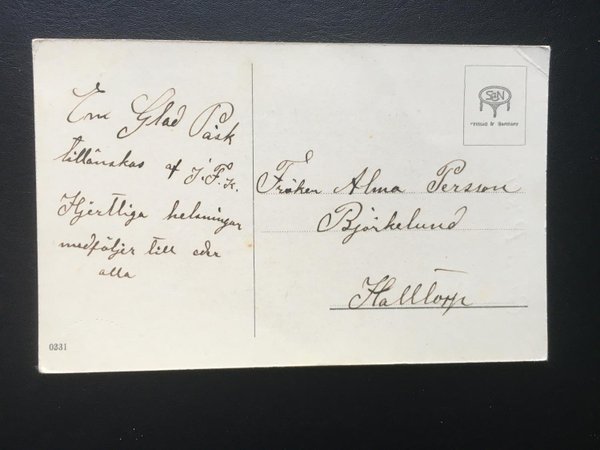 En Glad Påsk
tillönskas af J. F. K.
Hjertliga helsningar
medföljer till eder
alla
0331
S&N
Printed in Germany
Fröken Alma Persson
Björkelund
Halltorp